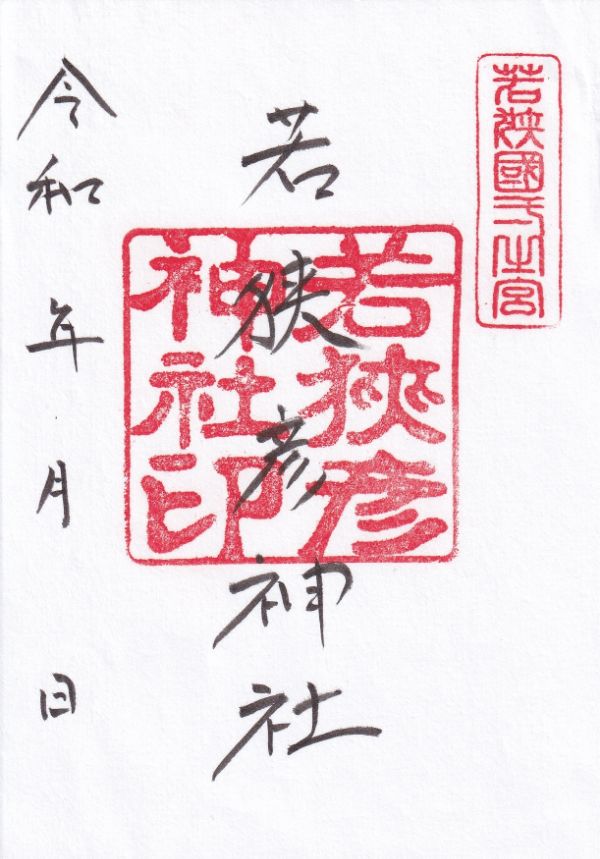 若狹國一之宮
若狭彦神社
若狹彦
神社印
令和 年 月 日